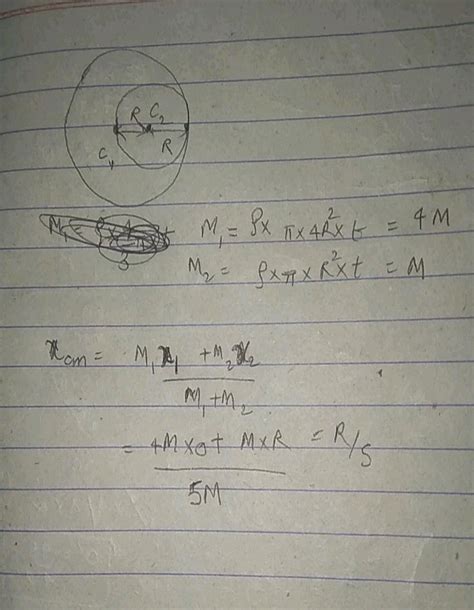 R C₂
R
C₁
M₁ = ρ × π × 4R² × t = 4M
3
M₂ = ρ × π × R² × t = M
x_cm = M₁x₁ + M₂x₂
M₁ + M₂
= 4M × 0 + M × R = R/5
5M